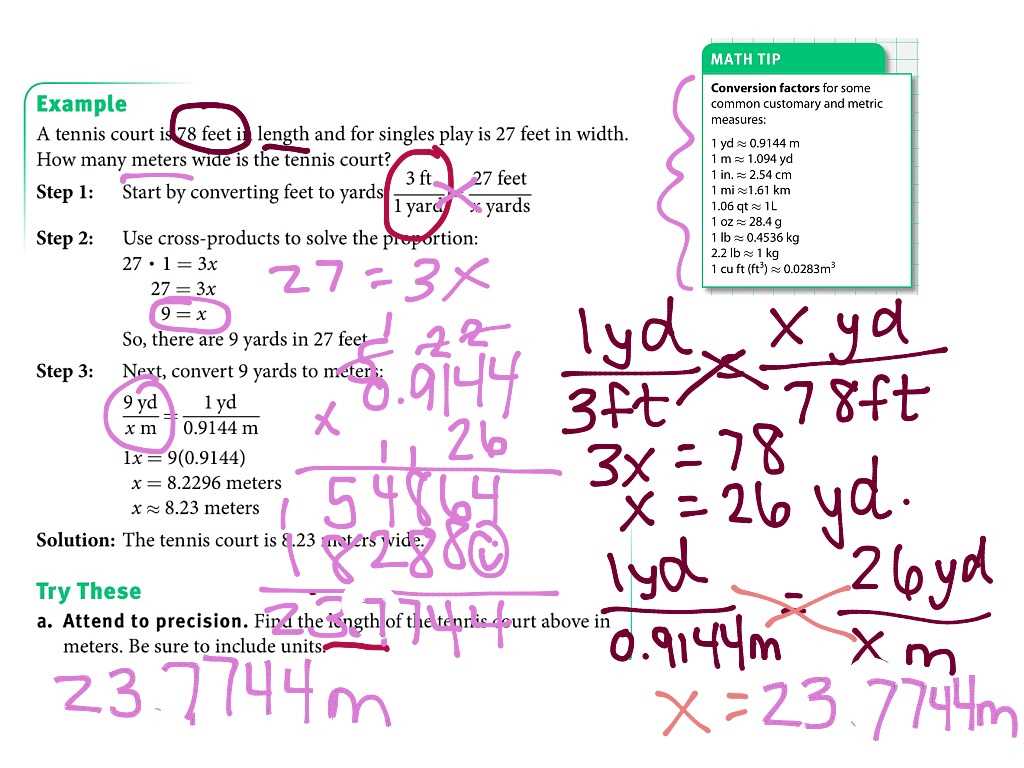 MATH TIP
Conversion factors for some
common customary and metric
measures:
1 yd ≈ 0.9144 m
1 m ≈ 1.094 yd
1 in. ≈ 2.54 cm
1 mi ≈1.61 km
1.06 qt ≈ 1L
1 oz ≈ 28.4 g
1 lb ≈ 0.4536 kg
2.2 lb ≈ 1 kg
1 cu ft (ft³) ≈ 0.0283m³
Example
A tennis court is 78 feet in length and for singles play is 27 feet in width.
How many meters wide is the tennis court?
Step 1: Start by converting feet to yards
3 ft 27 feet
1 yard x yards
Step 2: Use cross-products to solve the proportion:
27 • 1 = 3x
27 = 3x
9 = x
27 = 3x
So, there are 9 yards in 27 feet
Step 3: Next, convert 9 yards to meters:
9 yd = 1 yd
x m 0.9144 m
1x = 9(0.9144)
x = 8.2296 meters
x ≈ 8.23 meters
Solution: The tennis court is 8.23 meters wide.
1
5 2 2
0.9144
x 26
1 1
54864
1 18288
23.7744
1yd = x yd
3ft 78ft
3x = 78
x = 26 yd.
1yd = 26yd
0.9144m x m
x = 23.7744m
Try These
a. Attend to precision. Find the length of the tennis court above in
meters. Be sure to include units.
23.7744m